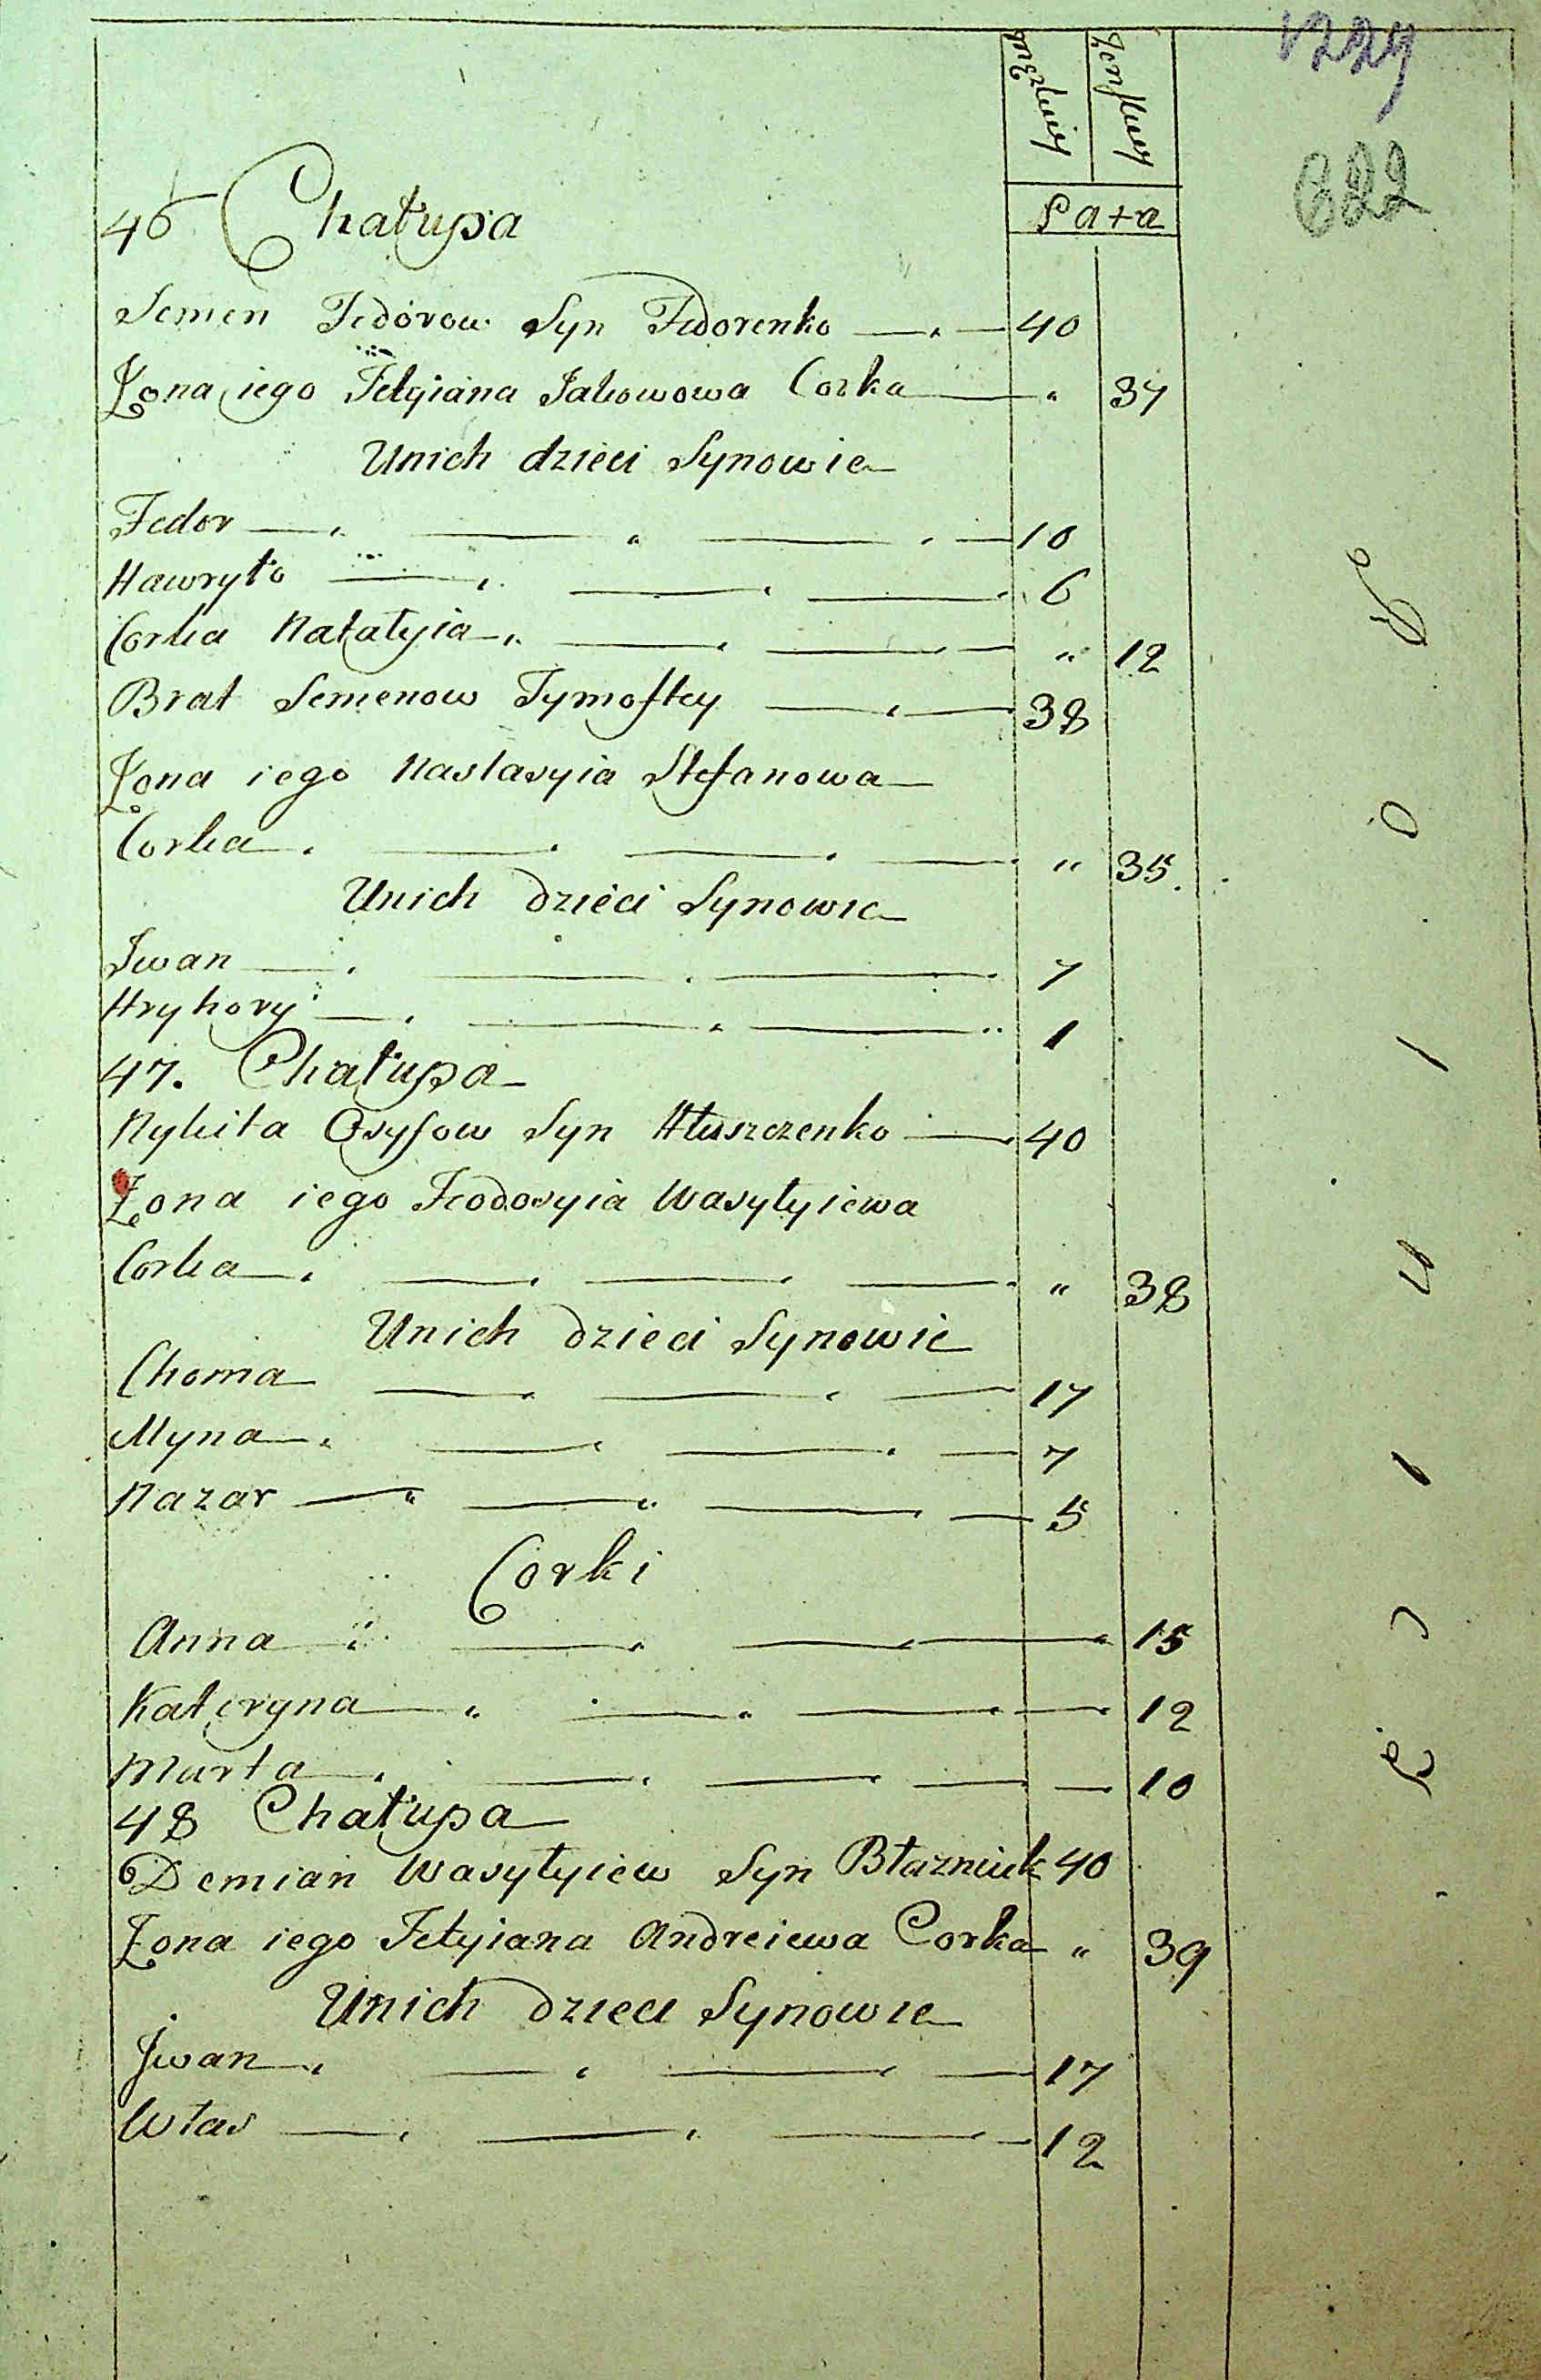 1229
622
męzkiey | Żenskiey
Lata
46 Chałupa
Semen Fedorow Syn Fedorenko — 40
Żona iego Tetyiana Jakowowa Corka — " 37
Unich dzieci Synowie
Fedor — 10
Hawryło — 6
Corka Natałyia — " 12
Brat Semenow Tymoftey — 38
Żona iego Nastasyia Stefanowa
Corka — " 35
Unich dzieci Synowie
Iwan — 7
Hryhory — 1
47. Chałupa
Nykita Osyfow Syn Hłuszczenko — 40
Żona iego Feodosyia Wasylyiewa
Corka — " 38
Unich dzieci Synowie
Choma — 17
Myna — 7
Nazar — 5
Corki
Anna — 15
Kateryna — 12
Marta — 10
48 Chałupa
Demian Wasyłyiew Syn Błazniuk 40
Żona iego Tetyiana Andreiewa Corka " 39
Unich dzieci Synowie
Iwan — 17
Włas — 12